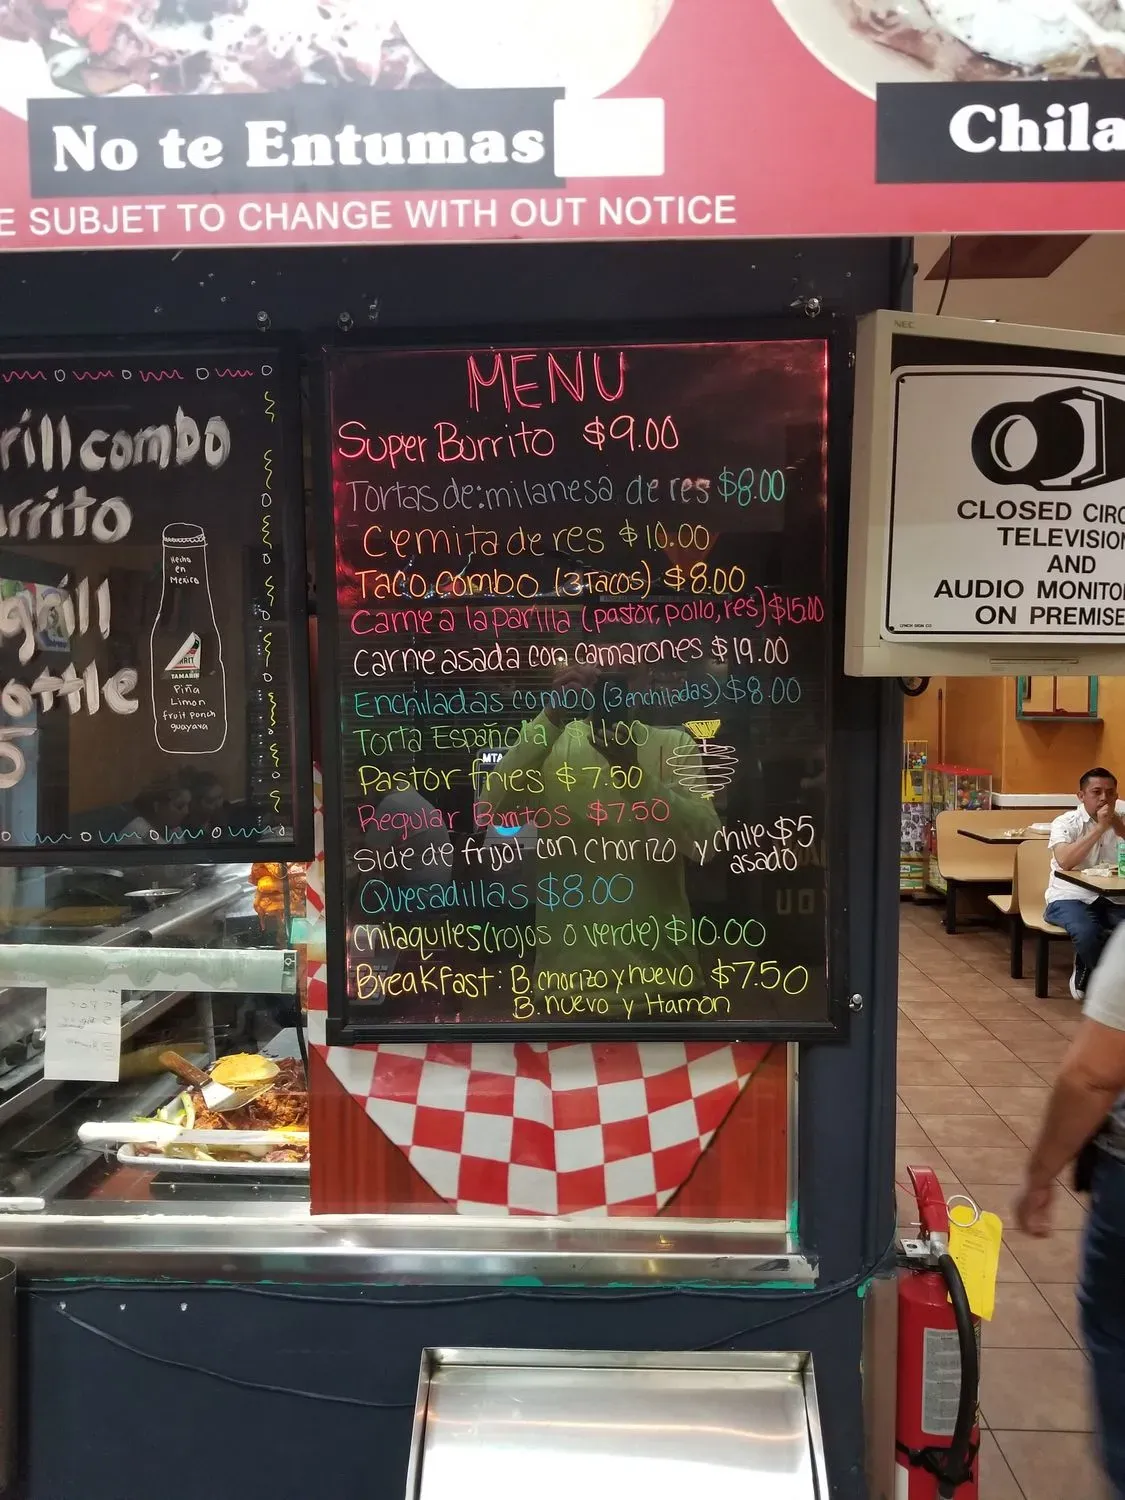 No te Entumas
Chila
E SUBJET TO CHANGE WITH OUT NOTICE
NEC
CLOSED CIRC
TELEVISION
AND
AUDIO MONITO
ON PREMISE
rill combo
urrito
grill
ottle
Hecho
en
Mexico
TAMARIN
Piña
Limon
fruit ponch
guayava
MENU
Super Burrito $9.00
Tortas de: milanesa de res $8.00
Cemita de res $10.00
Taco combo (3 Tacos) $8.00
Carne a la parilla (pastor, pollo, res) $15.00
Carne asada con camarones $19.00
Enchiladas combo (3 enchiladas) $8.00
Torta Española $11.00
Pastor fries $7.50
Regular Burritos $7.50
Side de frijol con chorizo y chile $5
asado
Quesadillas $8.00
chilaquiles (rojos o verde) $10.00
Breakfast: B. chorizo y huevo $7.50
B. huevo y Hamon
MTA